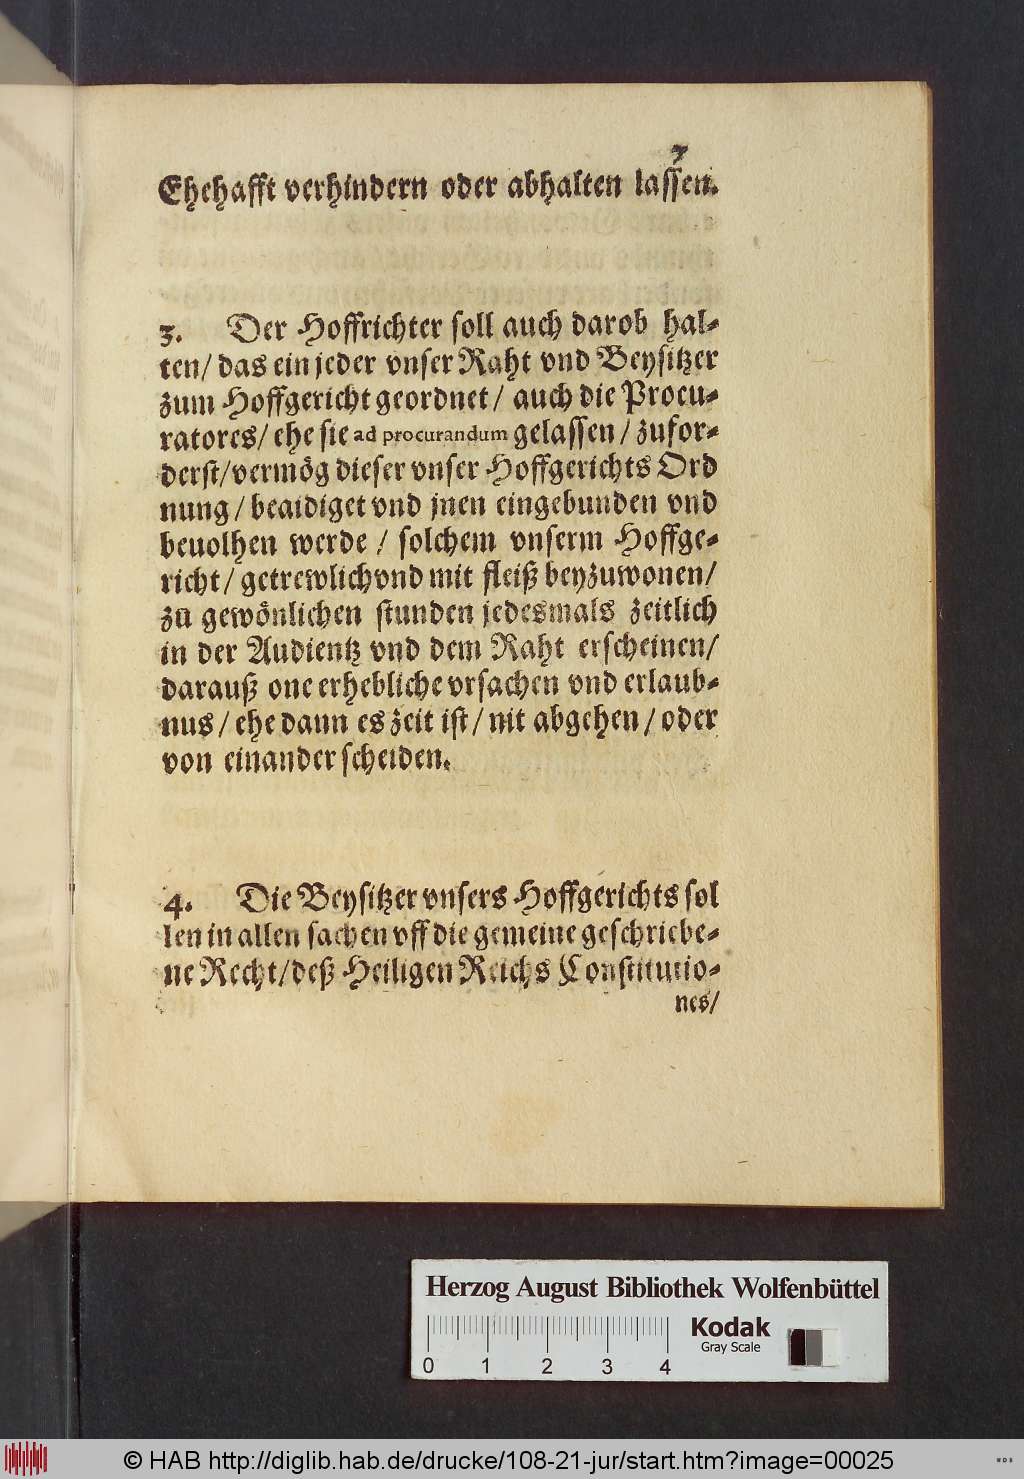 7
Ehehafft verhindern oder abhalten lassen.
3. Der Hoffrichter soll auch darob hal-
ten/ das ein jeder vnser Raht vnd Beysitzer
zum Hoffgericht geordnet/ auch die Procu-
ratores/ ehe sie ad procurandum gelassen/ zufor-
derst/ vermög dieser vnser Hoffgerichts Ord
nung/ beaidiget vnd jnen eingebunden vnd
beuolhen werde/ solchem vnserm Hoffge-
richt/ getrewlich vnd mit fleiß beyzuwonen/
zū gewönlichen stunden jedesmals zeitlich
in der Audientz vnd dem Raht erscheinen/
darauß one erhebliche vrsachen vnd erlaub-
nus/ ehe dann es zeit ist/ nit abgehen/ oder
von einander scheiden.
4. Die Beysitzer vnsers Hoffgerichts sol
len in allen sachen vff die gemeine geschriebe-
ne Recht/ deß Heiligen Reichs Constitutio-
nes/
Herzog August Bibliothek Wolfenbüttel
Kodak
Gray Scale
0 1 2 3 4
© HAB http://diglib.hab.de/drucke/108-21-jur/start.htm?image=00025